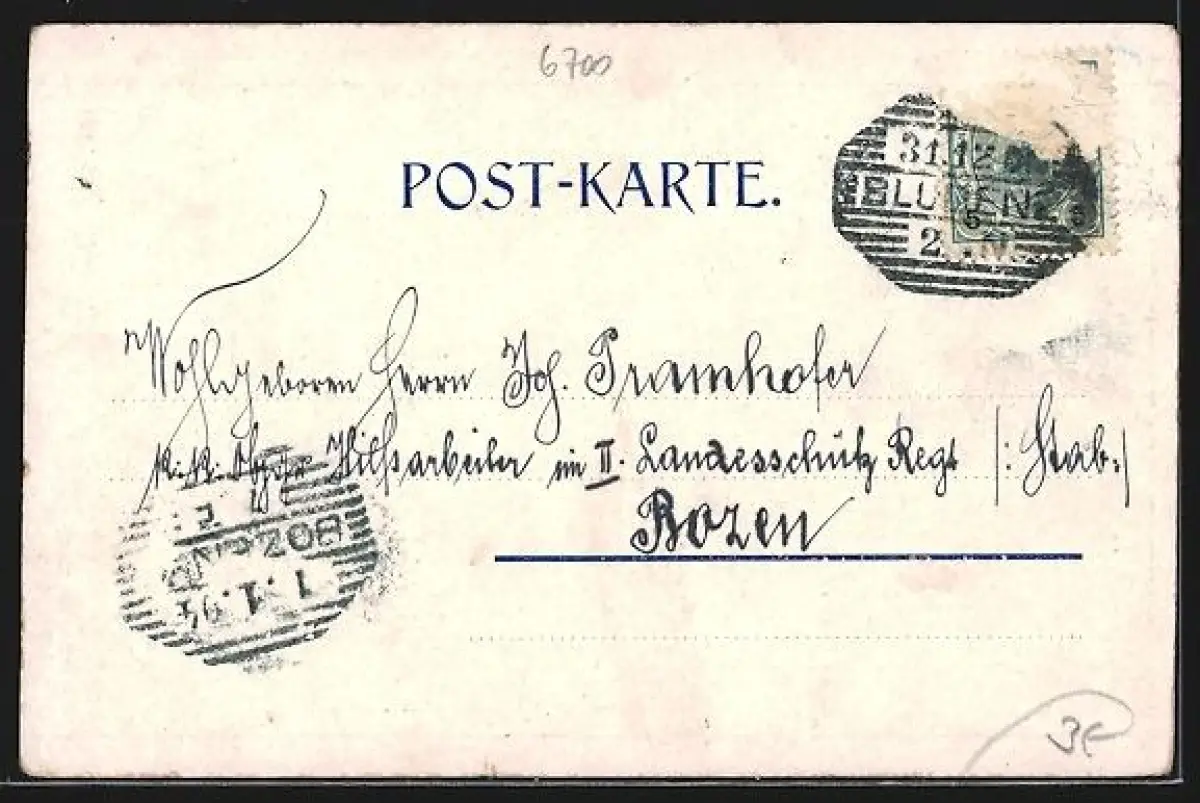 6700
POST-KARTE.
31.12
BLUDENZ
2
5 5
Wohlgeboren Herrn Joh. Tramhofer
k. k. Hilfsarbeiter im II. Landesschütz Regt /: Stab :/
Bozen
BOZEN
1.1.
3€